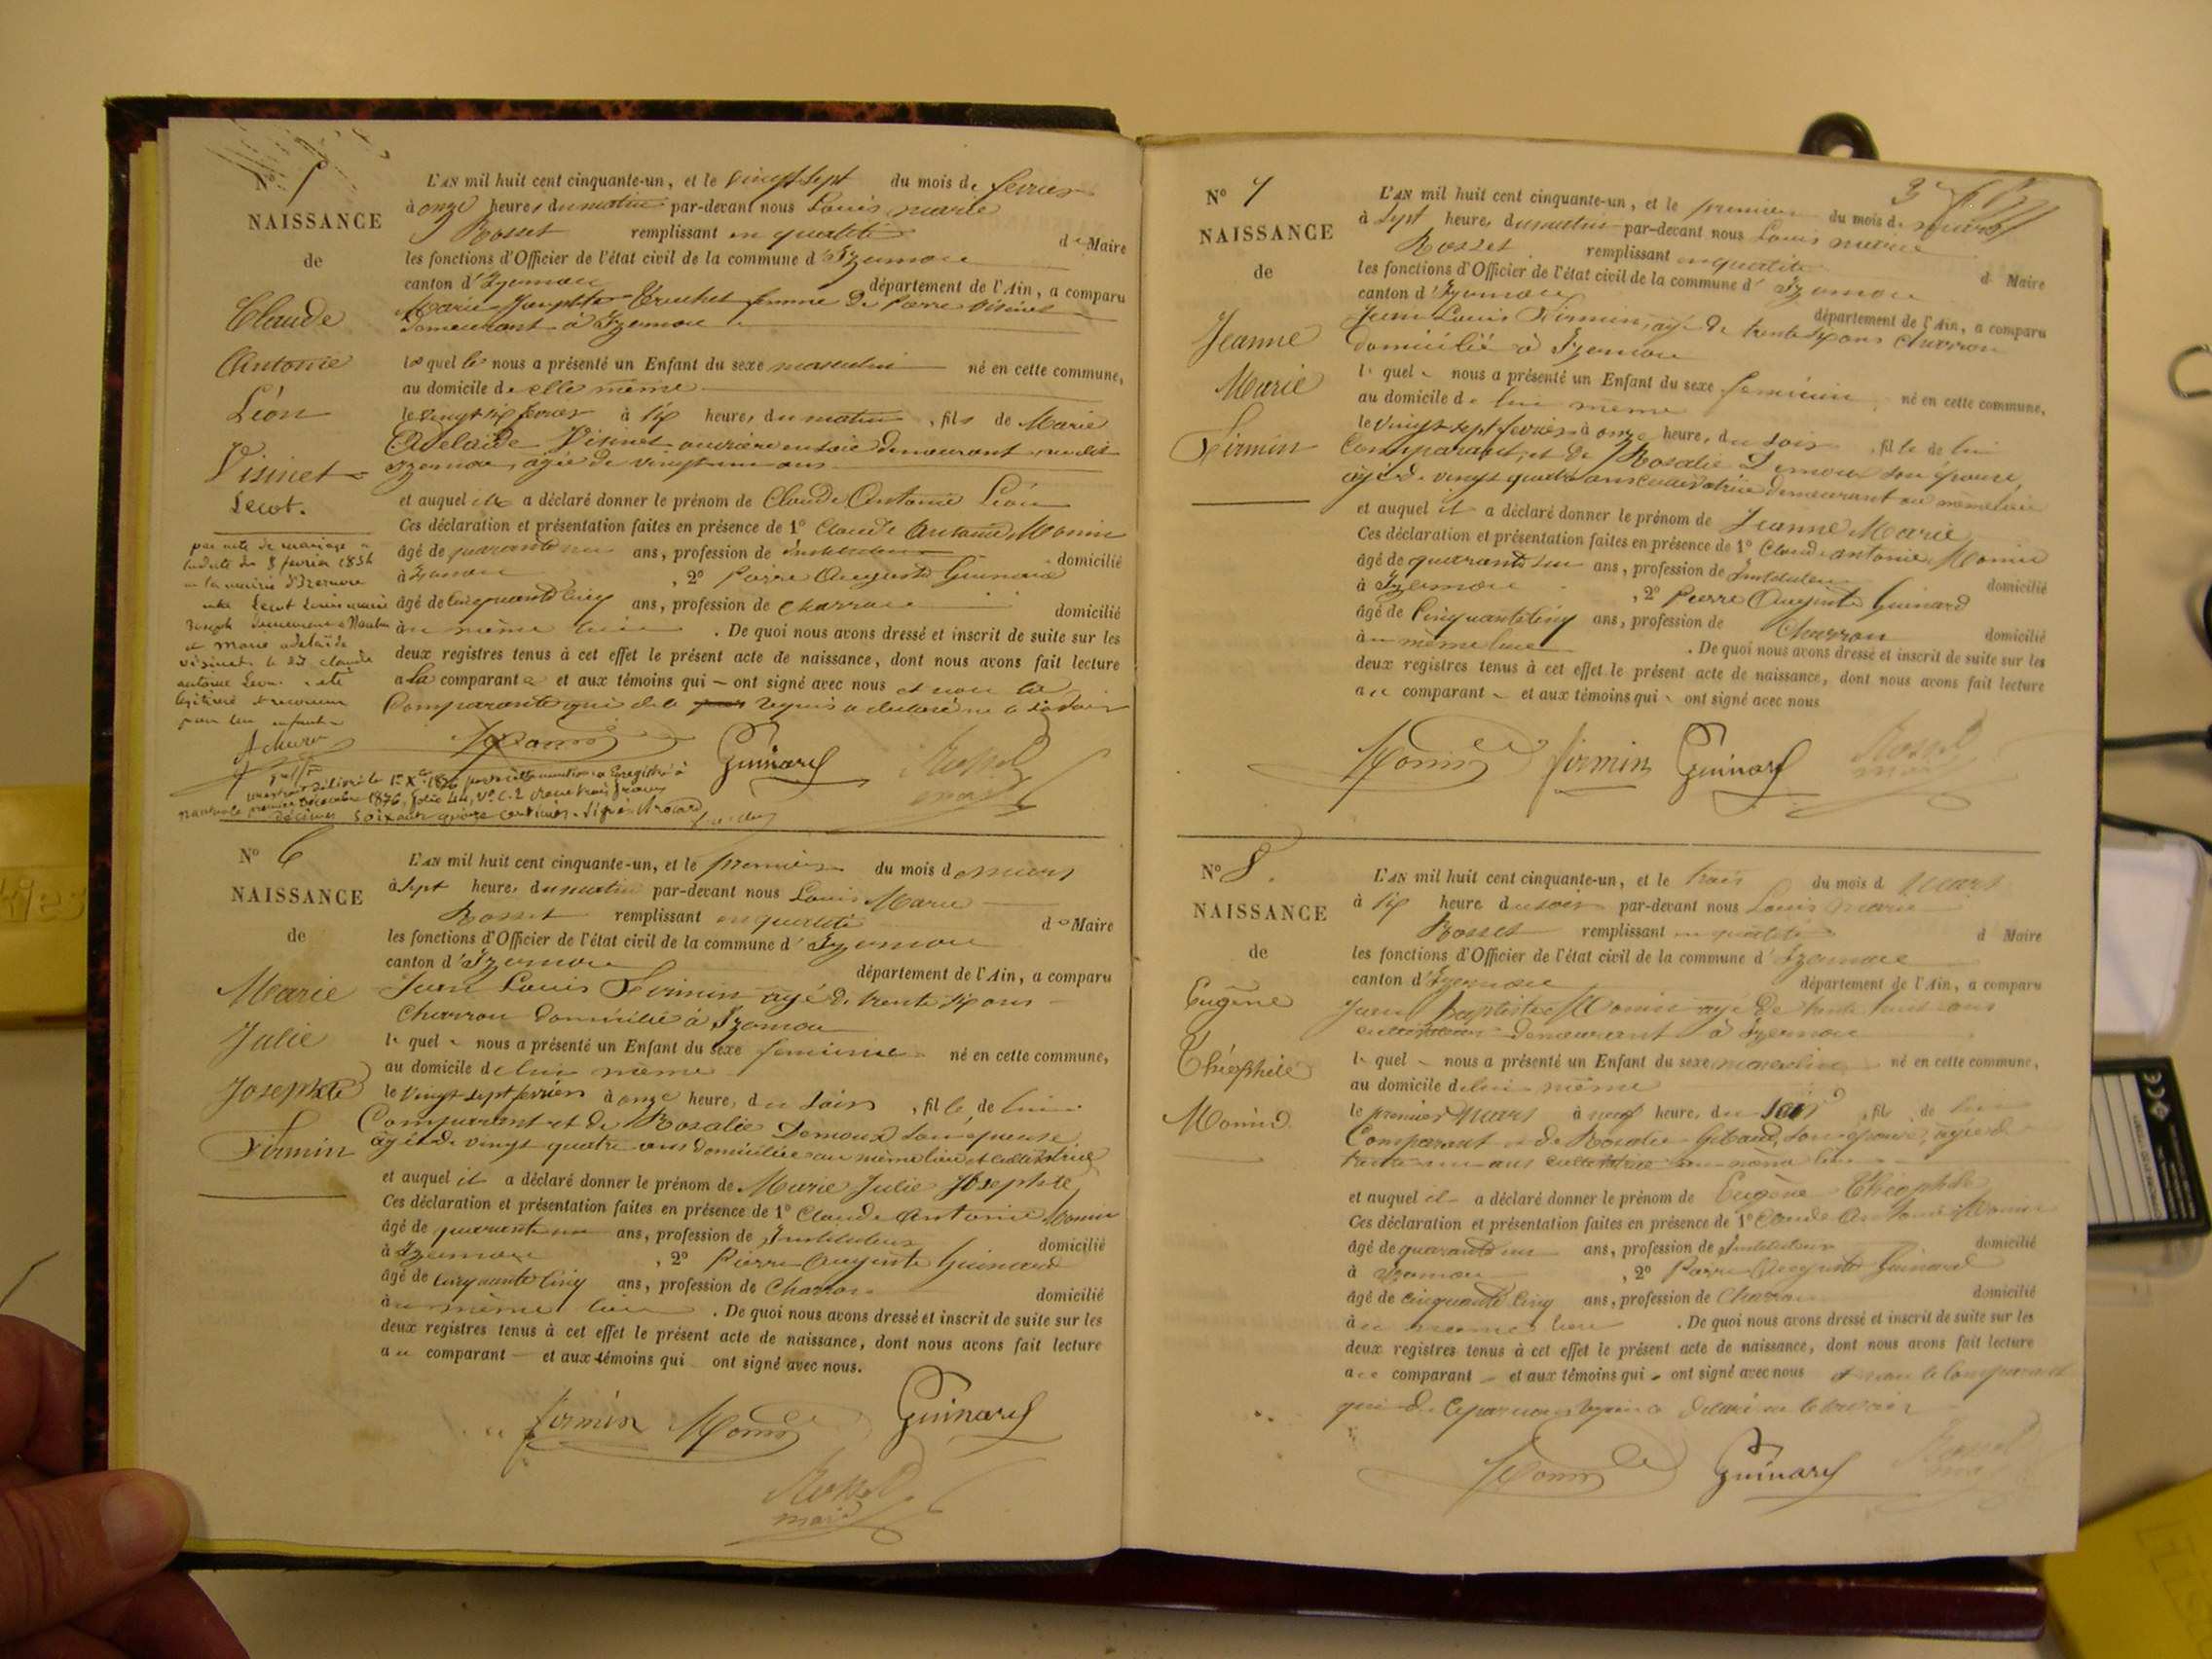 N° 5
NAISSANCE
de
Claude
Antonie
Léon
Visinet =
Lecot.
par acte de mariage
du 8 février 1854
a la mairie d'Izernore
entre Lecot Louis marie
Joseph demeurant à Nantua
et marie adelaïde
visinet, le dit claude
antoine Leon a été
légitimé et reconnu
pour leur enfant
L'AN mil huit cent cinquante-un, et le vingt sept du mois de fevrier
à onze heures du matin par-devant nous Louis marie
Rosset remplissant en qualité de Maire
les fonctions d'Officier de l'état civil de la commune d'Izernore
canton d'Izernore département de l'Ain, a comparu
Marie Josephte Truchet femme de Pierre Visinet
demeurant à Izernore
laquelle nous a présenté un Enfant du sexe masculin né en cette commune,
au domicile de elle même
le vingt six fevrier à six heures du matin, fils de Marie
Adelaïde Visinet ouvrière en soie demeurant au dit
Izernore, agée de vingt un ans
et auquel elle a déclaré donner le prénom de Claude Antonie Léon
Ces déclaration et présentation faites en présence de 1° Claude Antonie Monin
âgé de quarante un ans, profession de Instituteur domicilié
à Izernore, 2° Pierre Auguste Guinard
âgé de cinquante cinq ans, profession de charron domicilié
au même lieu. De quoi nous avons dressé et inscrit de suite sur les
deux registres tenus à cet effet le présent acte de naissance, dont nous avons fait lecture
a la comparante et aux témoins qui ont signé avec nous et non la
Comparante qui de ce requis a déclaré ne le savoir
Monin Guinard Rosset
maire
N° 6
NAISSANCE
de
Marie
Julie
Josephte
Firmin
L'AN mil huit cent cinquante-un, et le premier du mois de mars
à sept heures du matin par-devant nous Louis Marie
Rosset remplissant en qualité de Maire
les fonctions d'Officier de l'état civil de la commune d'Izernore
canton d'Izernore département de l'Ain, a comparu
Jean Louis Firmin agé de trente six ans
Charron domicilié à Izernore
lequel nous a présenté un Enfant du sexe feminin né en cette commune,
au domicile de lui même
le vingt sept fevrier à onze heures du soir, fille de lui
Comparant et de Rosalie Demoux son épouse
agée de vingt quatre ans domiciliée au même lieu et cultivatrice
et auquel il a déclaré donner le prénom de Marie Julie Josephte
Ces déclaration et présentation faites en présence de 1° Claude Antonie Monin
âgé de quarante un ans, profession de Instituteur domicilié
à Izernore, 2° Pierre Auguste Guinard
âgé de cinquante cinq ans, profession de Charron domicilié
au même lieu. De quoi nous avons dressé et inscrit de suite sur les
deux registres tenus à cet effet le présent acte de naissance, dont nous avons fait lecture
au comparant et aux témoins qui ont signé avec nous.
firmin Monin Guinard
Rosset
maire
N° 7
NAISSANCE
de
Jeanne
Marie
Firmin
L'AN mil huit cent cinquante-un, et le premier du mois de mars
à sept heures du matin par-devant nous Louis marie
Rosset remplissant en qualité de Maire
les fonctions d'Officier de l'état civil de la commune d'Izernore
canton d'Izernore département de l'Ain, a comparu
Jean Louis Firmin, agé de trente six ans charron
domicilié à Izernore
lequel nous a présenté un Enfant du sexe feminin, né en cette commune,
au domicile de lui même
le vingt sept fevrier à onze heures du soir, fille de lui
Comparant, et de Rosalie Demoux son épouse,
agée de vingt quatre ans cultivatrice demeurant au même lieu
et auquel il a déclaré donner le prénom de Jeanne Marie
Ces déclaration et présentation faites en présence de 1° Claude antonie Monin
âgé de quarante un ans, profession de Instituteur domicilié
à Izernore, 2° Pierre Auguste Guinard
âgé de Cinquante Cinq ans, profession de Charron domicilié
au même lieu. De quoi nous avons dressé et inscrit de suite sur les
deux registres tenus à cet effet le présent acte de naissance, dont nous avons fait lecture
au comparant et aux témoins qui ont signé avec nous
Monin firmin Guinard Rosset
maire
N° 8.
NAISSANCE
de
Eugène
Théophile
Monin
L'AN mil huit cent cinquante-un, et le trois du mois d mars
à six heure du soir par-devant nous Louis Marie
Rosset remplissant en qualité d Maire
les fonctions d'Officier de l'état civil de la commune d'Izernore
canton d'Izernore département de l'Ain, a comparu
Jean Baptiste Monin agé de trente huit ans
cultivateur demeurant à Izernore
lequel nous a présenté un Enfant du sexe masculin né en cette commune,
au domicile de lui même
le premier mars à neuf heure, du soir, fils de lui
Comparant et de Rosalie Gibaud, son épouse, agée de
trente un ans cultivatrice au même lieu
et auquel il a déclaré donner le prénom de Eugène Théophile
Ces déclaration et présentation faites en présence de 1° Claude Antonie Monin
âgé de quarante un ans, profession de Instituteur domicilié
à Izernore, 2° Pierre Auguste Guinard
âgé de cinquante cinq ans, profession de Charron domicilié
au même lieu. De quoi nous avons dressé et inscrit de suite sur les
deux registres tenus à cet effet le présent acte de naissance, dont nous avons fait lecture
au comparant et aux témoins qui ont signé avec nous et non le comparant
qui de ce requis a déclaré ne le savoir
Monin Guinard Rosset